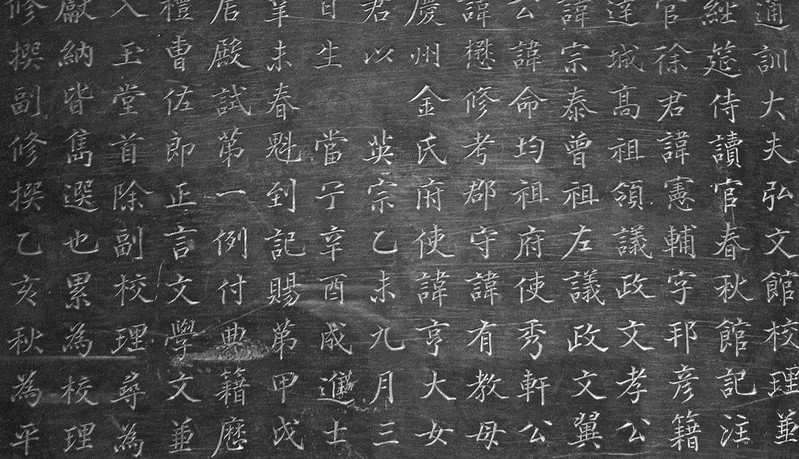 通訓大夫弘文館校理兼
經筵侍讀官春秋館記注
官徐君諱憲輔字邦彦籍
達城高祖領議政文孝公
諱宗泰曾祖左議政文翼
公諱命均祖府使秀軒公
諱懋修考郡守諱有教母
慶州金氏府使諱亨大女
君以 英宗乙未九月三
日生 當宁辛酉成進士
羊未春魁到記賜第甲戌
居殿試第一例付典籍歷
禮曹佐郎正言文學文兼
入玉堂首除副校理尋為
獻納皆雋選也累為校理
修撰副修撰乙亥秋為平